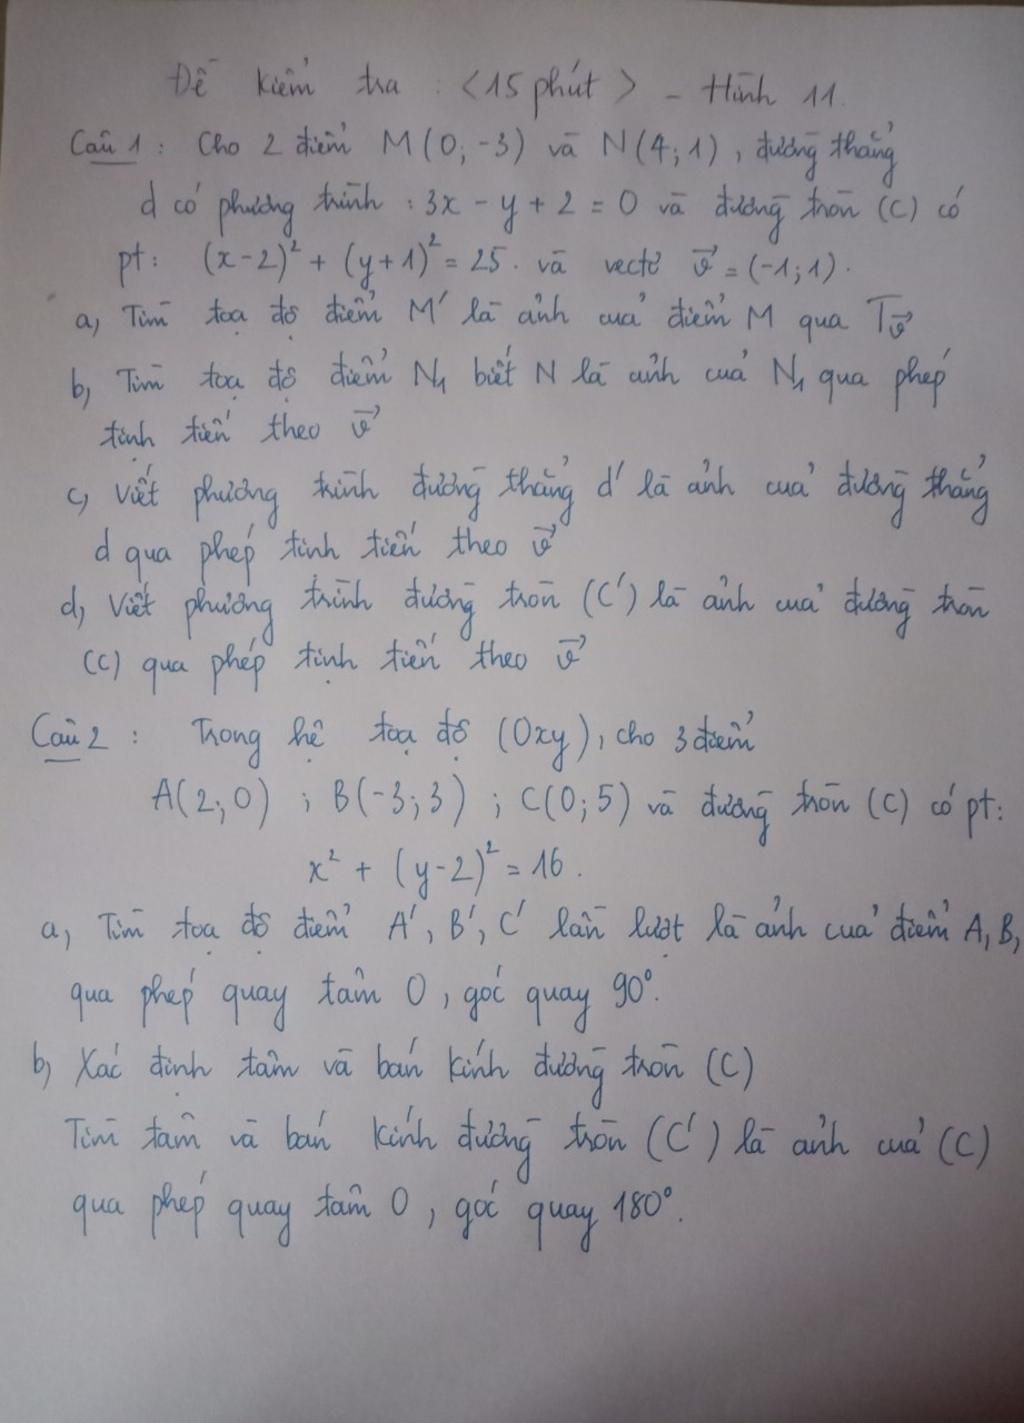 Đề kiểm tra : <15 phút> - Hình 11.
Câu 1 : Cho 2 điểm M(0;-3) và N(4;1), đường thẳng
d có phương trình : 3x - y + 2 = 0 và đường tròn (C) có
pt: (x-2)² + (y+1)² = 25. và vectơ v⃗ = (-1;1).
a, Tìm toạ độ điểm M' là ảnh của điểm M qua Tv⃗
b, Tìm toạ độ điểm N₁ biết N là ảnh của N₁ qua phép
tịnh tiến theo v⃗
c, Viết phương trình đường thẳng d' là ảnh của đường thẳng
d qua phép tịnh tiến theo v⃗
d, Viết phương trình đường tròn (C') là ảnh của đường tròn
(C) qua phép tịnh tiến theo v⃗
Câu 2 : Trong hệ toạ độ (Oxy), cho 3 điểm
A(2;0) ; B(-3;3) ; C(0;5) và đường tròn (C) có pt:
x² + (y-2)² = 16.
a, Tìm toạ độ điểm A', B', C' lần lượt là ảnh của điểm A, B,
qua phép quay tâm O, góc quay 90°.
b, Xác định tâm và bán kính đường tròn (C)
Tìm tâm và bán kính đường tròn (C') là ảnh của (C)
qua phép quay tâm O, góc quay 180°.